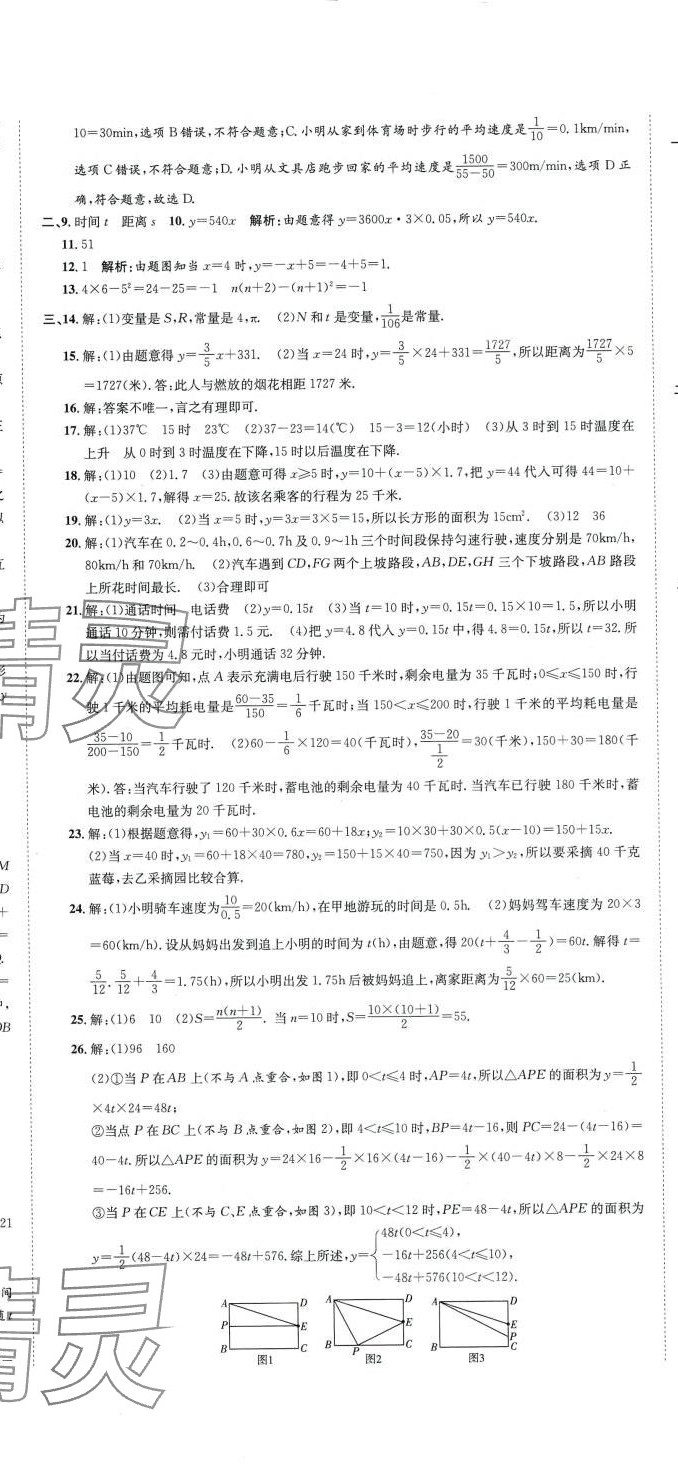 10=30min,选项B错误,不符合题意;C.小明从家到体育场时步行的平均速度是1/10=0.1km/min,
选项C错误,不符合题意;D.小明从文具店跑步回家的平均速度是1500/(55-50)=300m/min,选项D正
确,符合题意,故选D.
二、9.时间t 距离s 10.y=540x 解析:由题意得y=3600x·3×0.05,所以y=540x.
11.51
12.1 解析:由题图知当x=4时,y=-x+5=-4+5=1.
13.4×6-5²=24-25=-1 n(n+2)-(n+1)²=-1
三、14.解:(1)变量是S,R,常量是4,π. (2)N和t是变量,1/106是常量.
15.解:(1)由题意得y=3/5x+331. (2)当x=24时,y=3/5×24+331=1727/5,所以距离为1727/5×5
=1727(米).答:此人与燃放的烟花相距1727米.
16.解:答案不唯一,言之有理即可.
17.解:(1)37℃ 15时 23℃ (2)37-23=14(℃) 15-3=12(小时) (3)从3时到15时温度在
上升 从0时到3时温度在下降,15时以后温度在下降.
18.解:(1)10 (2)1.7 (3)由题意可得x≥5时,y=10+(x-5)×1.7,把y=44代入可得44=10+
(x-5)×1.7,解得x=25.故该名乘客的行程为25千米.
19.解:(1)y=3x. (2)当x=5时,y=3x=3×5=15,所以长方形的面积为15cm². (3)12 36
20.解:(1)汽车在0.2~0.4h,0.6~0.7h及0.9~1h三个时间段保持匀速行驶,速度分别是70km/h,
80km/h和70km/h. (2)汽车遇到CD,FG两个上坡路段,AB,DE,GH三个下坡路段,AB路段
上所花时间最长. (3)合理即可
21.解:(1)通话时间 电话费 (2)y=0.15t (3)当t=10时,y=0.15t=0.15×10=1.5,所以小明
通话10分钟,则需付话费1.5元. (4)把y=4.8代入y=0.15t中,得4.8=0.15t,所以t=32.所
以当付话费为4.8元时,小明通话32分钟.
22.解:(1)由题图可知,点A表示充满电后行驶150千米时,剩余电量为35千瓦时;0≤x≤150时,行
驶1千米的平均耗电量为(60-35)/150=1/6千瓦时;当150<x≤200时,行驶1千米的平均耗电量是
(35-10)/(200-150)=1/2千瓦时. (2)60-1/6×120=40(千瓦时),(35-20)/(1/2)=30(千米),150+30=180(千
米).答:当汽车行驶了120千米时,蓄电池的剩余电量为40千瓦时.当汽车已行驶180千米时,蓄
电池的剩余电量为20千瓦时.
23.解:(1)根据题意得,y₁=60+30×0.6x=60+18x;y₂=10×30+30×0.5(x-10)=150+15x.
(2)当x=40时,y₁=60+18×40=780,y₂=150+15×40=750,因为y₁>y₂,所以要采摘40千克
蓝莓,去乙采摘园比较合算.
24.解:(1)小明骑车速度为10/0.5=20(km/h),在甲地游玩的时间是0.5h. (2)妈妈驾车速度为20×3
=60(km/h).设从妈妈出发到追上小明的时间为t(h),由题意,得20(t+4/3-1/2)=60t.解得t=
5/12.5/12+4/3=1.75(h),所以小明出发1.75h后被妈妈追上,离家距离为5/12×60=25(km).
25.解:(1)6 10 (2)S=n(n+1)/2. 当n=10时,S=10×(10+1)/2=55.
26.解:(1)96 160
(2)①当P在AB上(不与A点重合,如图1),即0<t≤4时,AP=4t,所以△APE的面积为y=1/2
×4t×24=48t;
②当点P在BC上(不与B点重合,如图2),即4<t≤10时,BP=4t-16,则PC=24-(4t-16)=
40-4t.所以△APE的面积为y=24×16-1/2×16×(4t-16)-1/2×(40-4t)×8-1/2×24×8
=-16t+256.
③当P在CE上(不与C、E点重合,如图3),即10<t<12时,PE=48-4t,所以△APE的面积为
y=1/2(48-4t)×24=-48t+576.综上所述,y={48t(0<t≤4),
-16t+256(4<t≤10),
-48t+576(10<t<12).
A D P E B C 图1
A D E B P C 图2
A D E P B C 图3
精灵
精灵